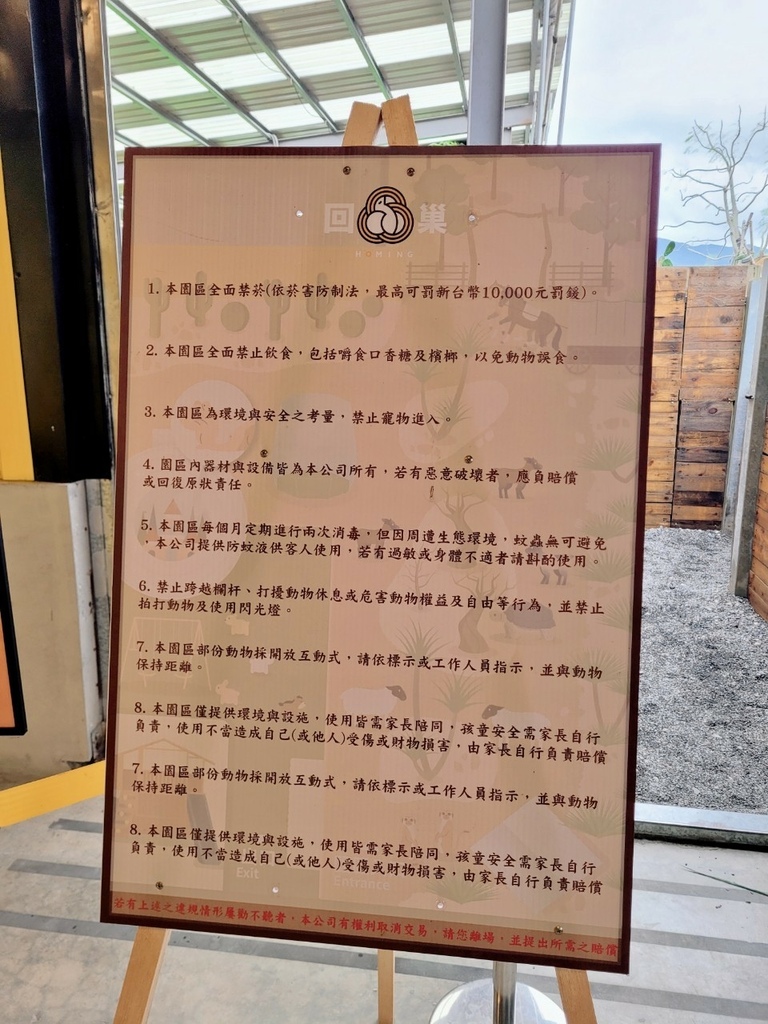 回巢
HOMING
1. 本園區全面禁菸(依菸害防制法，最高可罰新台幣10,000元罰鍰)。
2. 本園區全面禁止飲食，包括嚼食口香糖及檳榔，以免動物誤食。
3. 本園區為環境與安全之考量，禁止寵物進入。
4. 園區內器材與設備皆為本公司所有，若有惡意破壞者，應負賠償
或回復原狀責任。
5. 本園區每個月定期進行兩次消毒，但因周遭生態環境，蚊蟲無可避免
，本公司提供防蚊液供客人使用，若有過敏或身體不適者請斟酌使用。
6. 禁止跨越欄杆、打擾動物休息或危害動物權益及自由等行為，並禁止
拍打動物及使用閃光燈。
7. 本園區部份動物採開放互動式，請依標示或工作人員指示，並與動物
保持距離。
8. 本園區僅提供環境與設施，使用皆需家長陪同，孩童安全需家長自行
負責，使用不當造成自己(或他人)受傷或財物損害，由家長自行負責賠償
7. 本園區部份動物採開放互動式，請依標示或工作人員指示，並與動物
保持距離。
8. 本園區僅提供環境與設施，使用皆需家長陪同，孩童安全需家長自行
負責，使用不當造成自己(或他人)受傷或財物損害，由家長自行負責賠償
Exit
Entrance
若有上述之違規情形屢勸不聽者，本公司有權利取消交易，請您離場，並提出所需之賠償